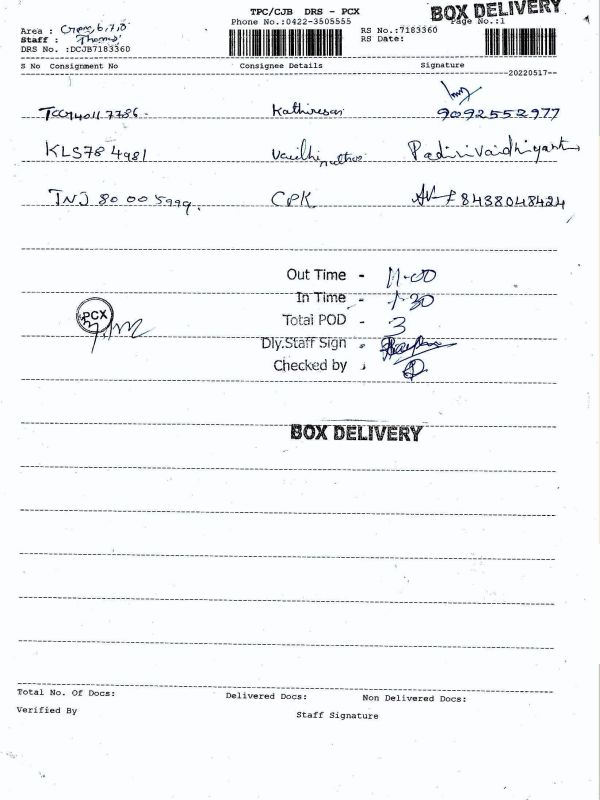 TPC/CJB DRS - PCX
BOX DELIVERY
Phone No.:0422-3505555
Page No.:1
Area :
Staff : Thomas
DRS No. :DCJB7183360
RS No.:7183360
RS Date:
S No Consignment No Consignee Details Signature
20220517
7786 Kathiresan 9092552977
KLS784981 Padirivaidhiyanathan
TNJ 80 00 5999. CPK 8438048424
Out Time - 11-00
In Time - 1-30
Total POD - 3
Dly.Staff Sign -
Checked by
PCX
BOX DELIVERY
Total No. Of Docs: Delivered Docs: Non Delivered Docs:
Verified By Staff Signature